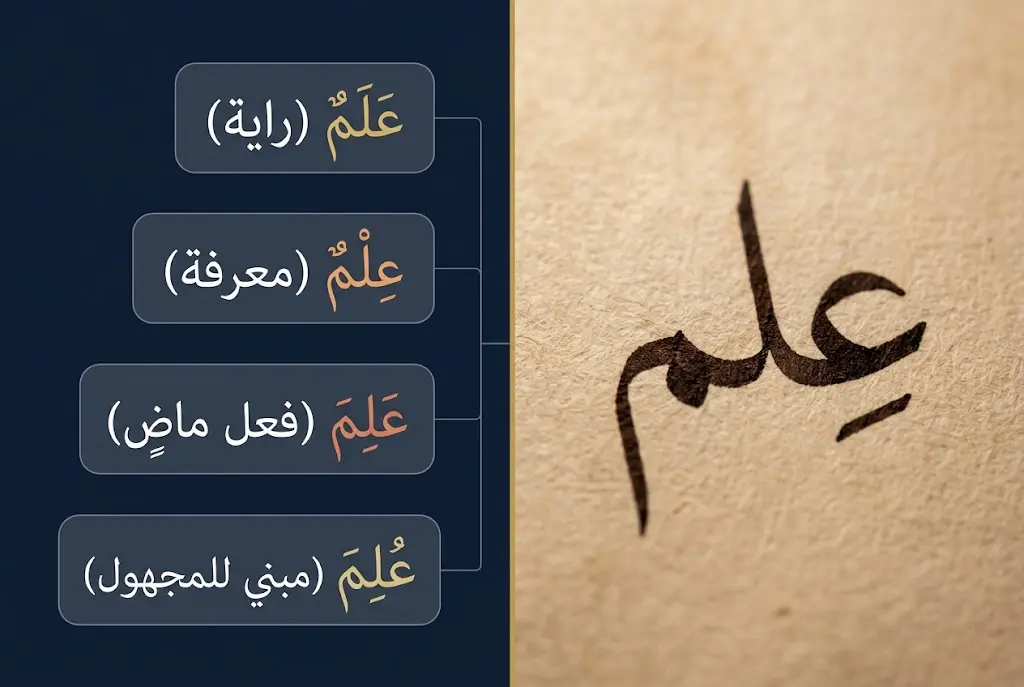 عَلَمٌ (راية)
عِلْمٌ (معرفة)
عَلِمَ (فعل ماضٍ)
عُلِمَ (مبني للمجهول)
عِلم